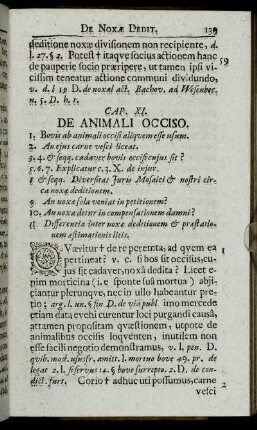 DE NOXÆ DEDIT. 139
deditione noxæ divisionem non recipiente, d.
l. 27. §. 2. Potest † itaqve socius actionem hanc 59
de pauperie socio præripere, ut tamen ipsi vi-
cissim teneatur actione communi dividundo,
v. d. l 19 D. de noxal act. Bachov. ad Wesenbec.
n. 5. D. h. t.
CAP. XI.
DE ANIMALI OCCISO,
1. Bovis ab animali occisi aliqvem esse usum.
2. An ejus carne vesci liceat.
3. 4. & seqq. cadaver bovis occisi cujus sit?
5. 6. 7. Explicatur c. 3. X. de injur.
8 & seqq. Diversitas Juris Mosaici & nostri cir-
ca noxæ deditionem.
9. An noxa sola veniat in petitionem?
10. An noxa detur in compensationem damni?
11. Differentia inter noxæ deditionem & præstatio-
nem æstimationis litis.
QVæritur † de re perempta, ad qvem ea 1
pertineat? v. c. si bos sit occisus, cu-
jus sit cadaver, noxâ dedita? Licet e-
nim morticina (i. e sponte sua mortua) abji-
ciantur plerunqve, nec in ullo habeantur pre-
tio; arg. l. un. § fin D. de via publ. imo mercede
etiam data evehi curentur loci purgandi causâ,
attamen propositam qvæstionem, utpote de
animalibus occisis loqventem, inutilem non
esse facili negotio demonstramus, v. l. pen. D.
quib. mod. ususfr. amitt. l. mortuo bove 49. pr. de
legat 2. l. si servus 14. § bove surrepto. 2. D. de con-
dict. furt. Corio † adhuc uti possumus, carne 2
vesci